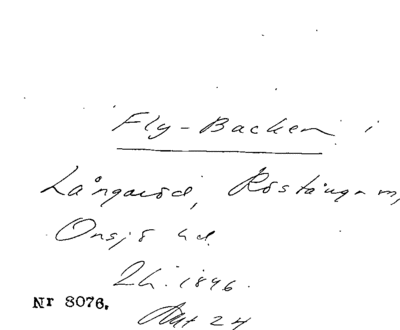 Fly-Backen i
Långaröd, Röstånga m,
Onsjö hd.
Lh. 1846.
Nr 8076.
Akt 24